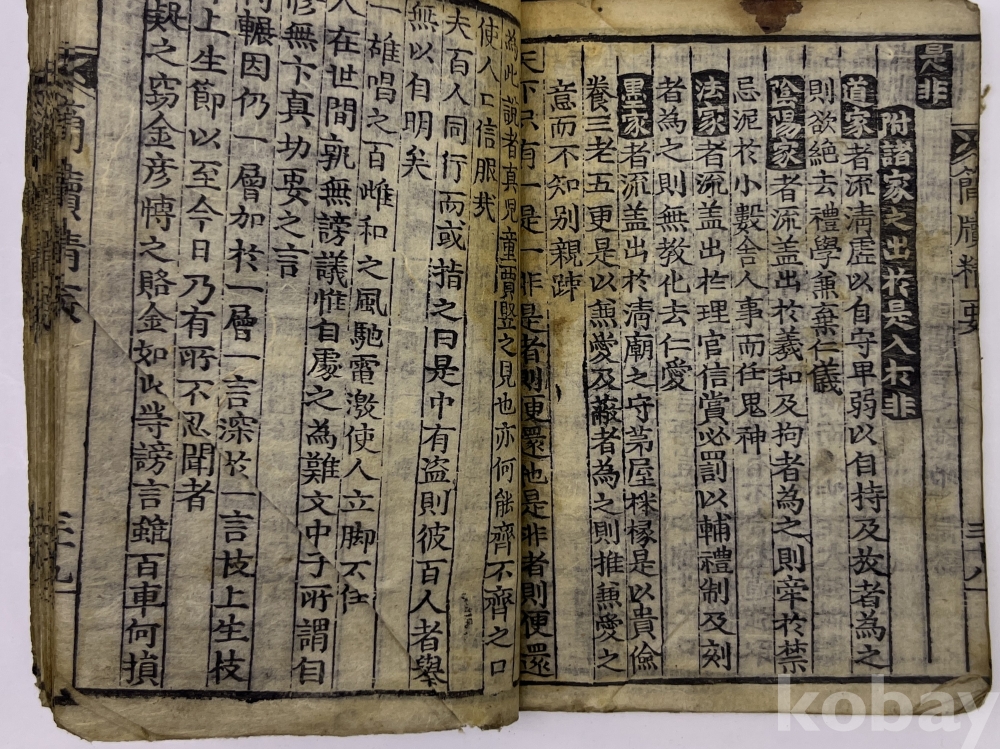 簡牘精要
三十八
是非
附諸家之出於是入於非
道家者流清虛以自守卑弱以自持及放者為之
則欲絶去禮學兼棄仁儀
陰陽家者流盖出於羲和及拘者為之則牽於禁
忌泥於小數舎人事而任鬼神
法家者流盖出於理官信賞必罰以輔禮制及刻
者為之則無教化去仁愛
墨家者流盖出於清廟之守茅屋採椽是以貴儉
養三老五更是以兼愛及蔽者為之則推兼愛之
意而不知別親疎
天下只有一是一非是者則更還他是非者則便還
為此說者真児童賈竪之見也亦何能齊不齊之口
使人口信服㢤
夫百人同行而或指之曰是中有盗則彼百人者舉
無以自明矣
一雄唱之百雌和之風馳電激使人立脚不住
人在世間孰無謗議惟自處之為難文中子所謂自
修無卞真功要之言
輾因仍一層加於一層一言深於一言枝上生枝
上生節以至今日乃有所不忍聞者
疑之窃金彦愽之賂金如此等謗言雖百車何損
簡牘精要
三十九
kobay